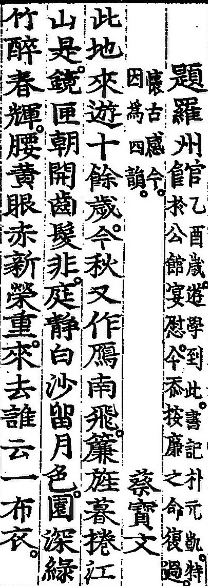 題羅州館乙酉歲遊學到此。書記朴元凱。特
於公館宴慰。今忝按廉之命復過。
懷古感今。
因為四韻。
蔡寶文
此地來遊十餘歲。今秋又作鴈南飛。簾旌暮捲江
山是。鏡匣朝開齒髮非。庭靜白沙留月色。園深綠
竹醉春輝。腰黃眼赤新榮重。來去誰云一布衣。